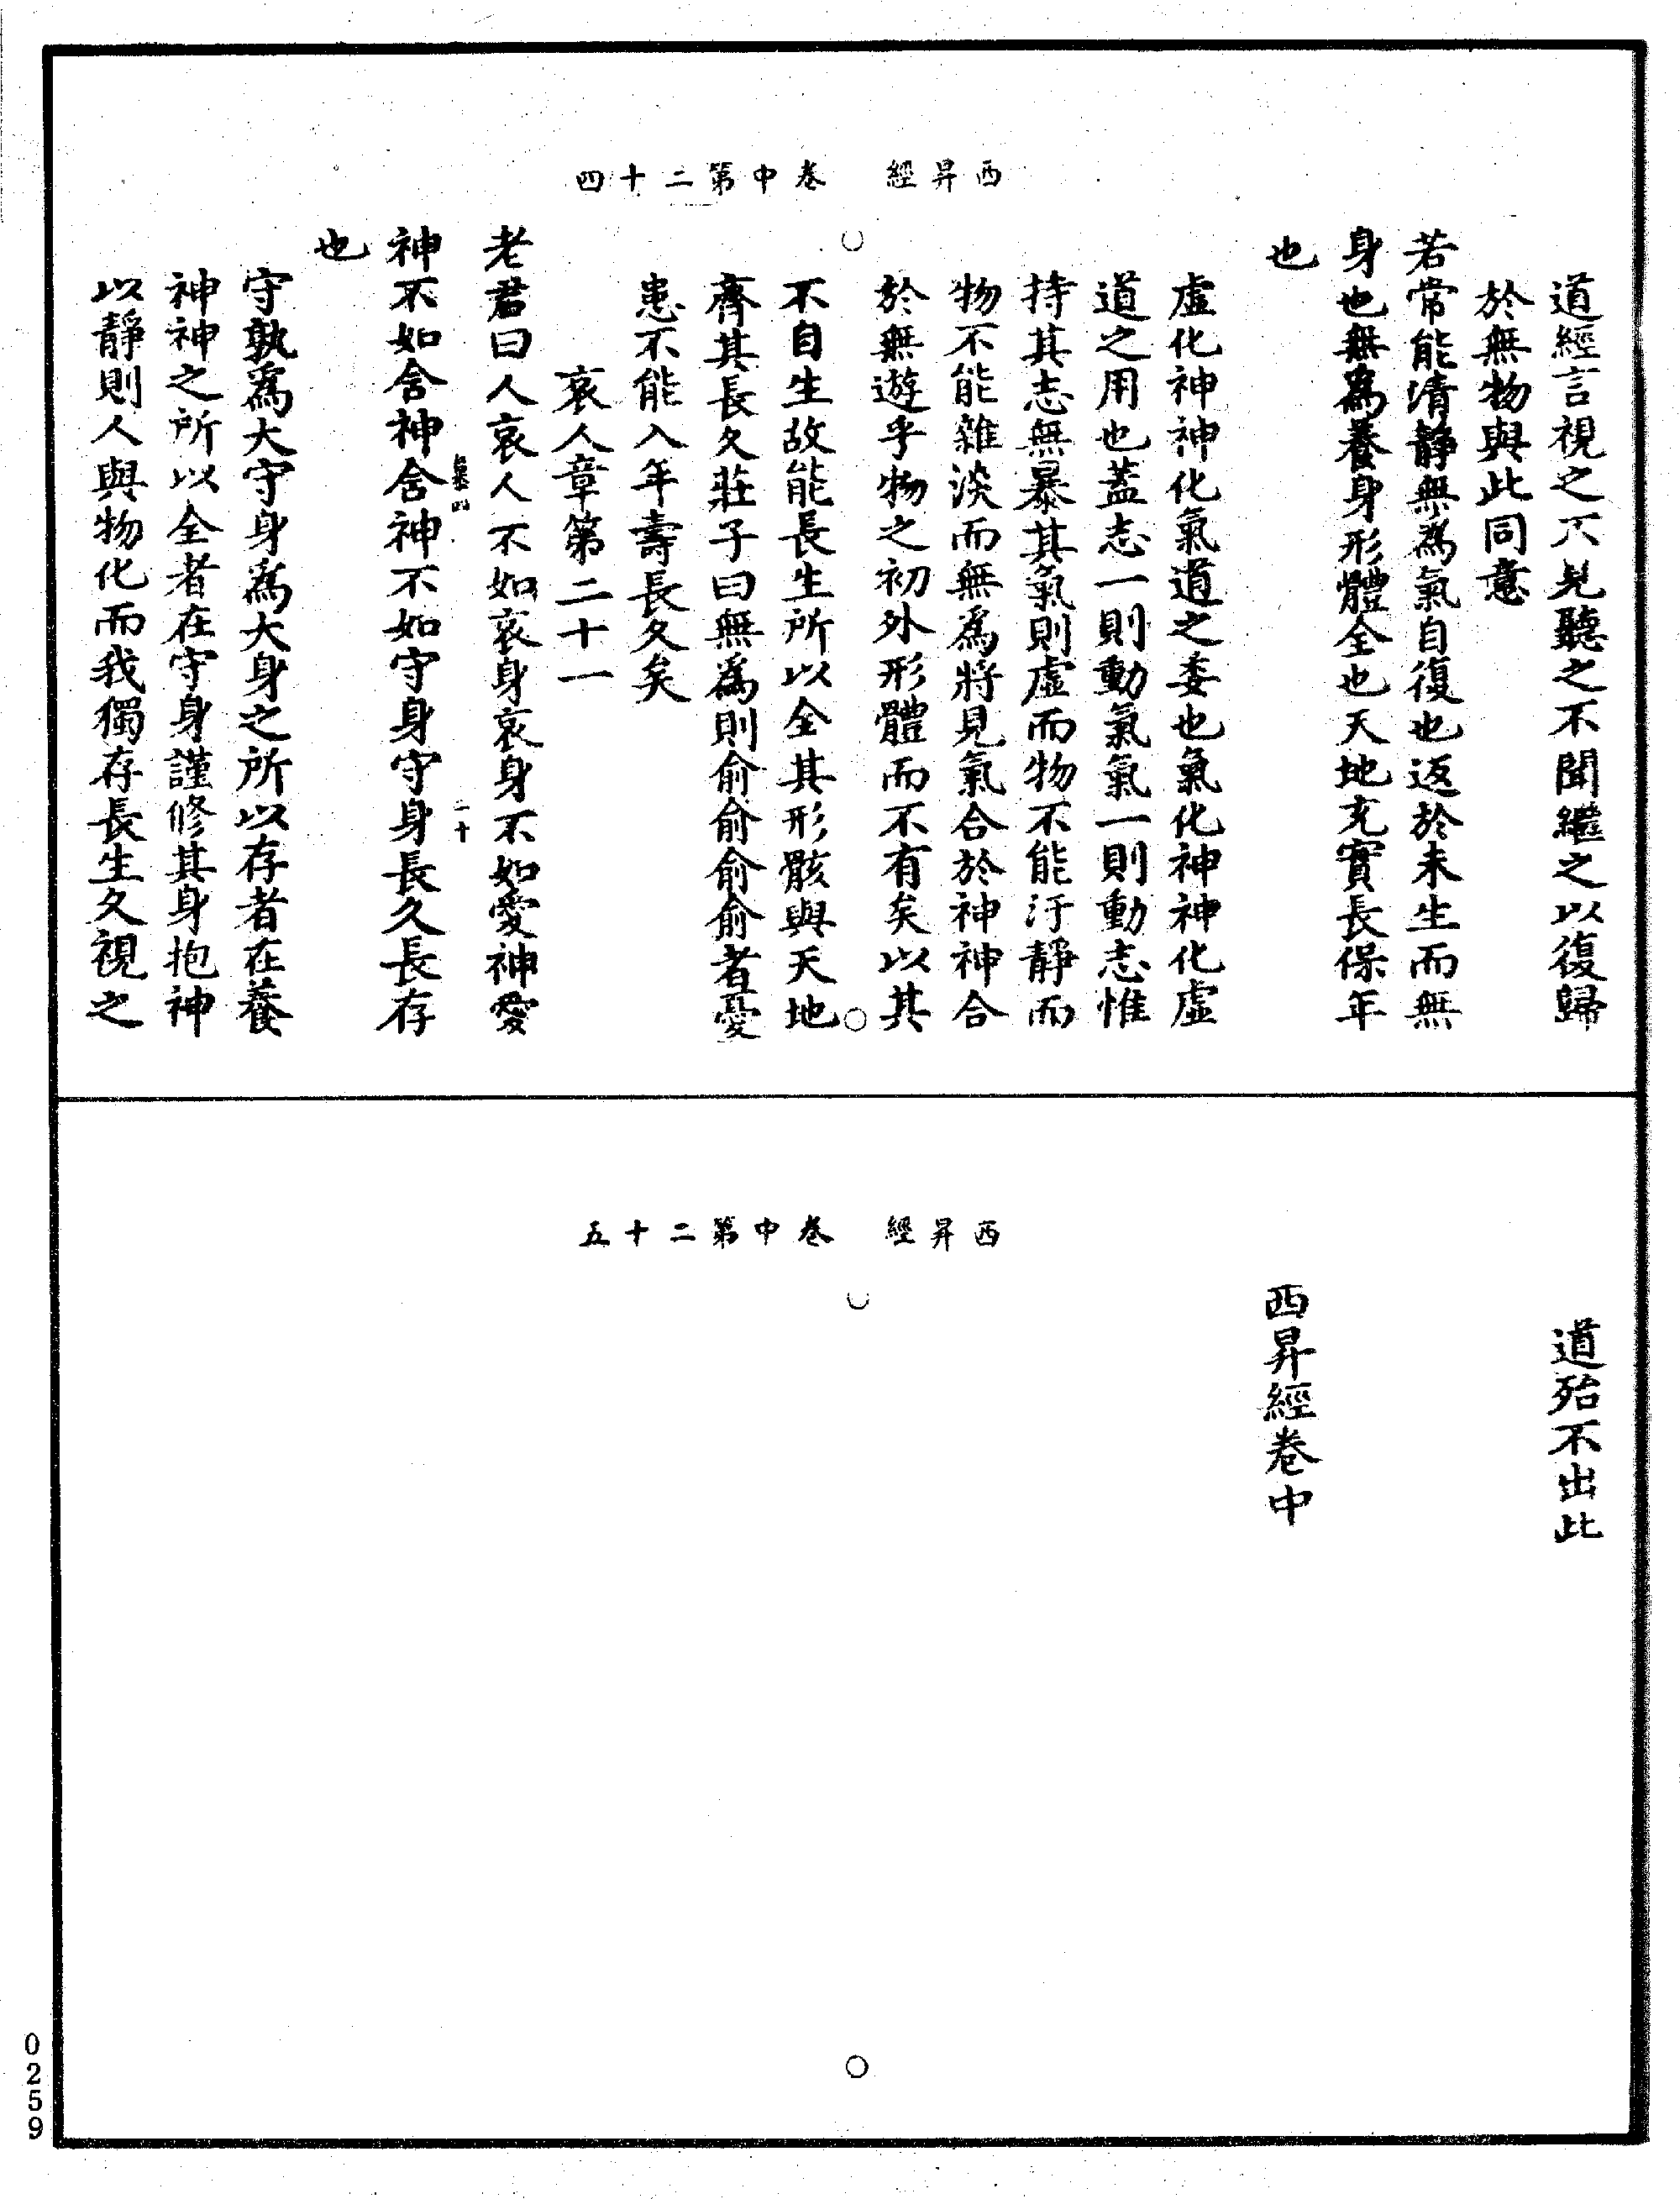 西昇經 卷中第二十四
道經言視之不見聽之不聞繼之以復歸
於無物與此同意
若常能清靜無為氣自復也返於未生而無
身也無為養身形體全也天地充實長保年
也
虛化神神化氣道之委也氣化神神化虛
道之用也蓋志一則動氣氣一則動志惟
持其志無暴其氣則虛而物不能汙靜而
物不能雜淡而無為將見氣合於神神合
於無遊乎物之初外形體而不有矣以其
不自生故能長生所以全其形骸與天地
齊其長久莊子曰無為則俞俞俞俞者憂
患不能入年壽長久矣
哀人章第二十一
老君曰人哀人不如哀身哀身不如愛神愛
神不如舍神舍神不如守身守身長久長存
也
守孰為大守身為大身之所以存者在養
神神之所以全者在守身謹修其身抱神
以靜則人與物化而我獨存長生久視之
西昇經 卷中第二十五
道殆不出此
西昇經卷中
0259